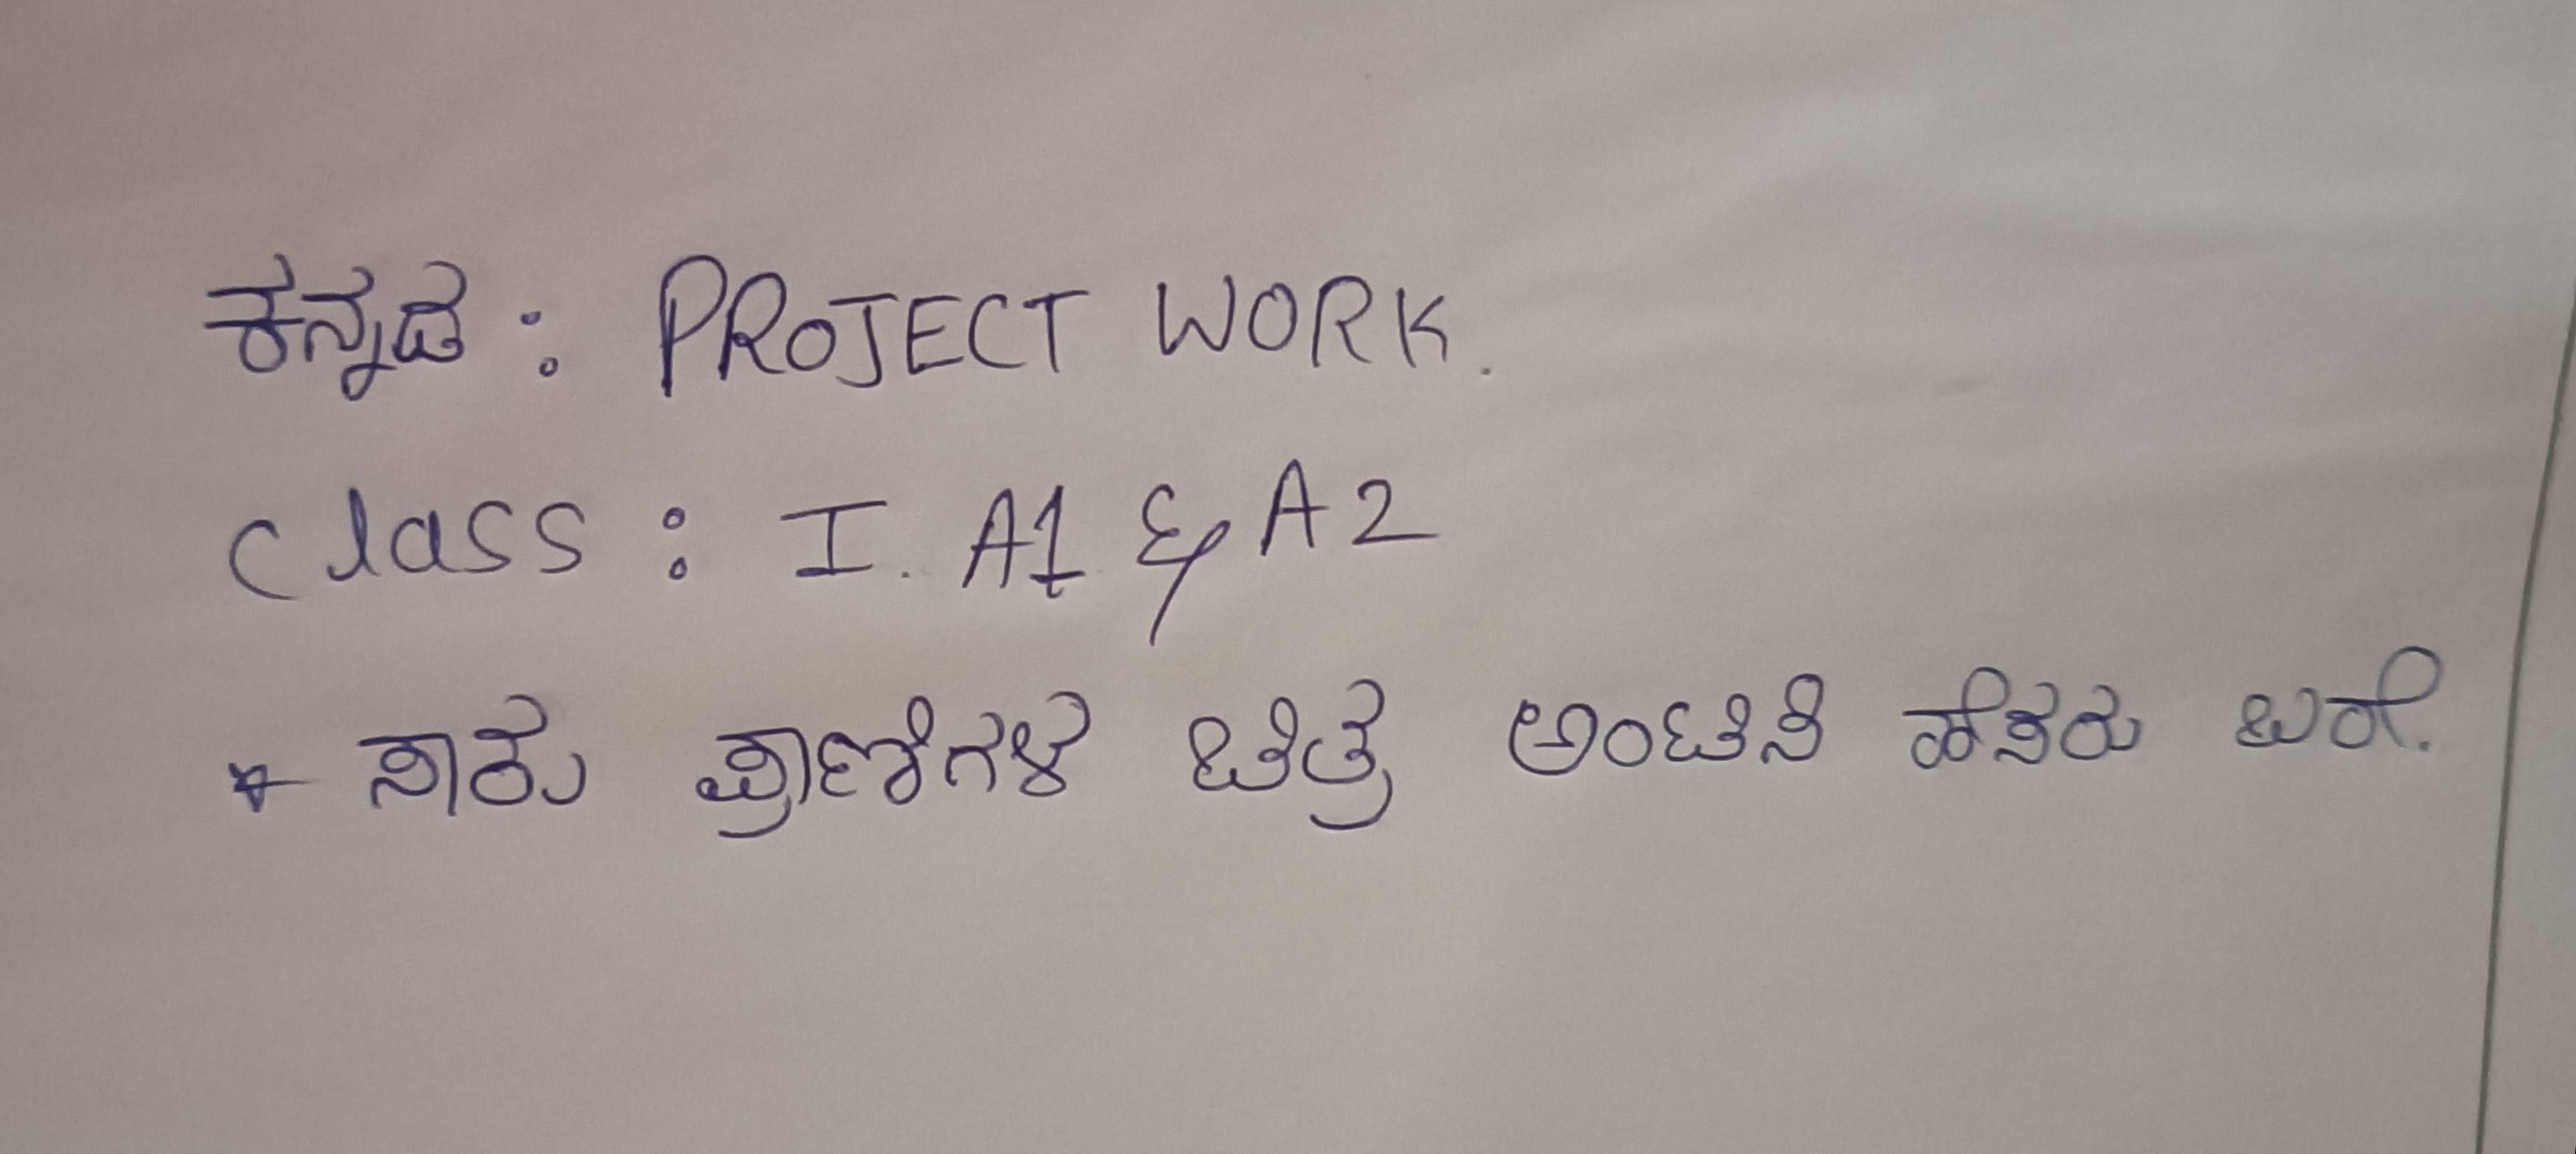 ಕನ್ನಡ : PROJECT WORK.
Class : I. A1 & A2
* ಸಾಕು ಪ್ರಾಣಿಗಳ ಚಿತ್ರ ಅಂಟಿಸಿ ಹೆಸರು ಬರೆ.